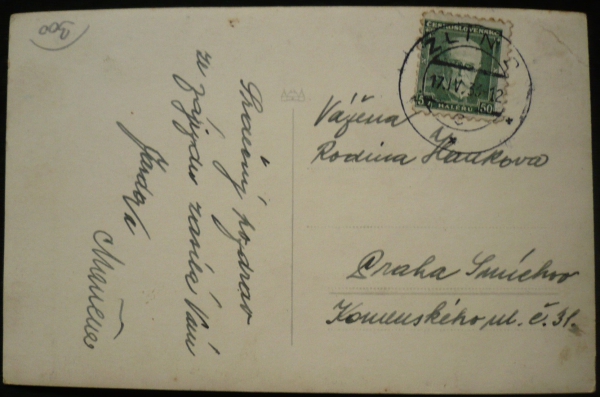 200
Srdečný pozdrav
ze zájezdu zasílá Vám
Jarda
ČESKOSLOVENSKO
50 HALÉŘŮ 50
ZLÍN
17.IV.3 12
Vážená
Rodina Haukova
Praha Smíchov
Komenského ul. č. 31.